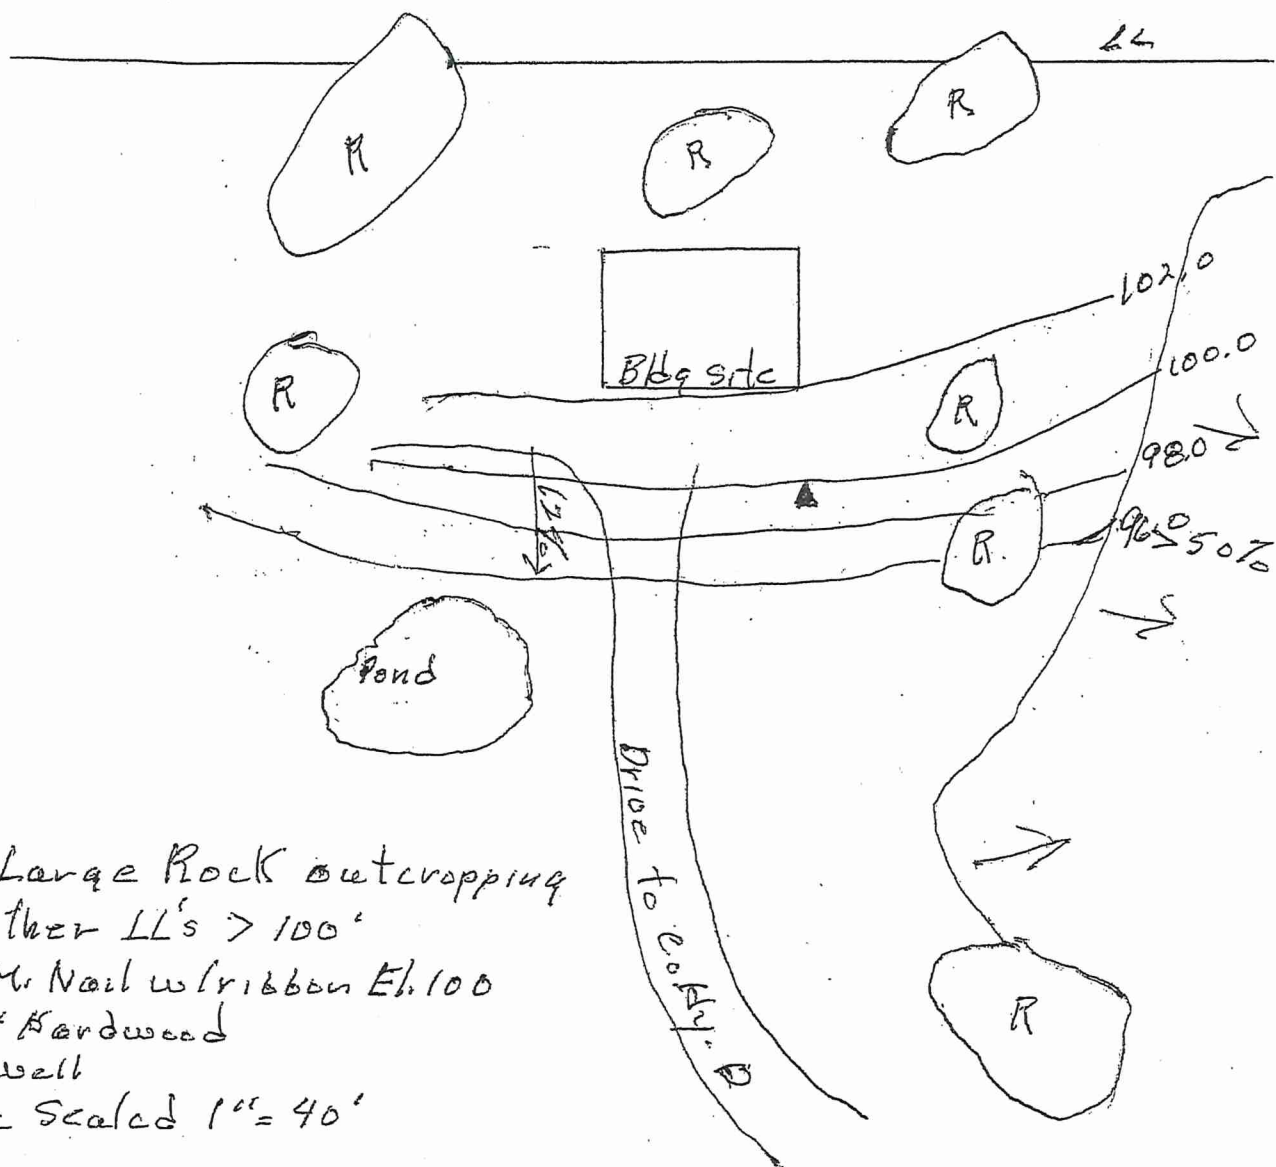 LL
R
R
R
102.0
Bldg site
100.0
R
R
98.0
12%
96.0
>50%
R
Pond
Drive to
Large Rock outcropping
ther LL's > 100'
M. Nail w/ribbon El. 100
" Hardwood
well
Scaled 1" = 40'
R